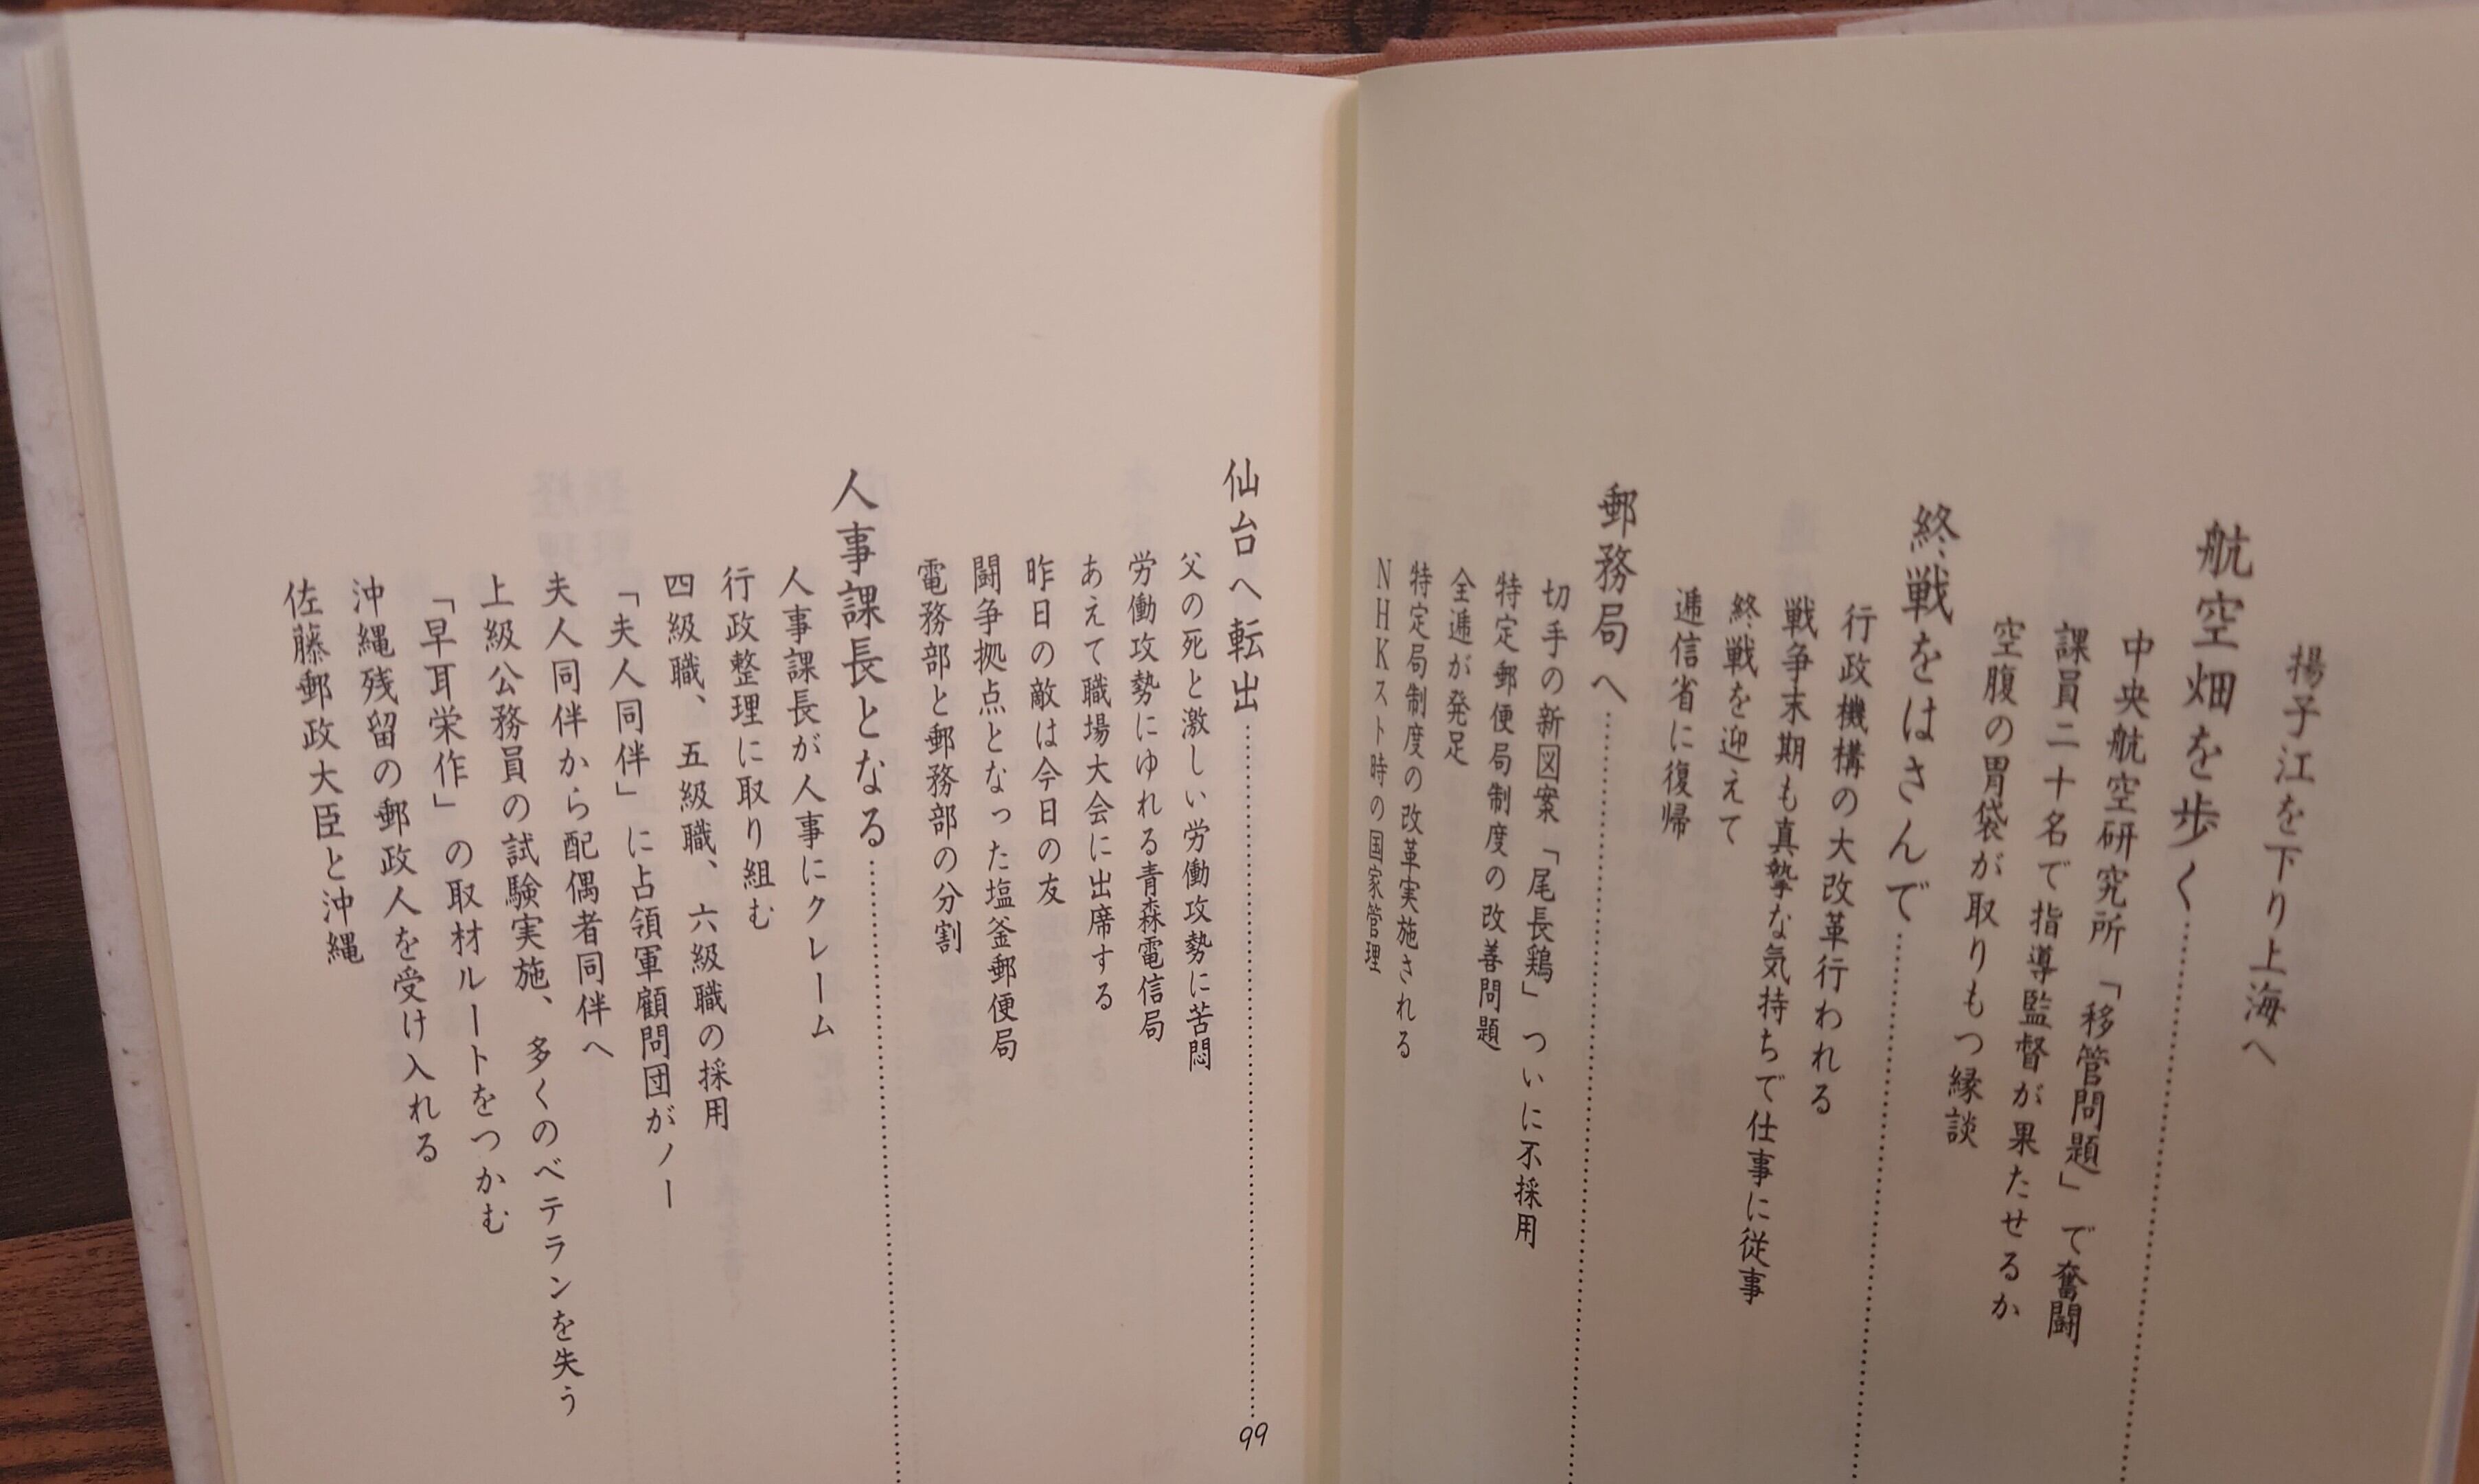 揚子江を下り上海へ
航空畑を歩く
中央航空研究所「移管問題」で奮闘
課員二十名で指導監督が果たせるか
空腹の胃袋が取りもつ縁談
終戦をはさんで
行政機構の大改革行われる
戦争末期も真摯な気持ちで仕事に従事
終戦を迎えて
逓信省に復帰
郵務局へ
切手の新図案「尾長鶏」ついに不採用
特定郵便局制度の改善問題
全逓が発足
特定局制度の改革実施される
NHKスト時の国家管理
仙台へ転出 99
父の死と激しい労働攻勢に苦悶
労働攻勢にゆれる青森電信局
あえて職場大会に出席する
昨日の敵は今日の友
闘争拠点となった塩釜郵便局
電務部と郵務部の分割
人事課長となる
人事課長が人事にクレーム
行政整理に取り組む
四級職、五級職、六級職の採用
「夫人同伴」に占領軍顧問団がノー
夫人同伴から配偶者同伴へ
上級公務員の試験実施、多くのベテランを失う
「早耳栄作」の取材ルートをつかむ
沖縄残留の郵政人を受け入れる
佐藤郵政大臣と沖縄